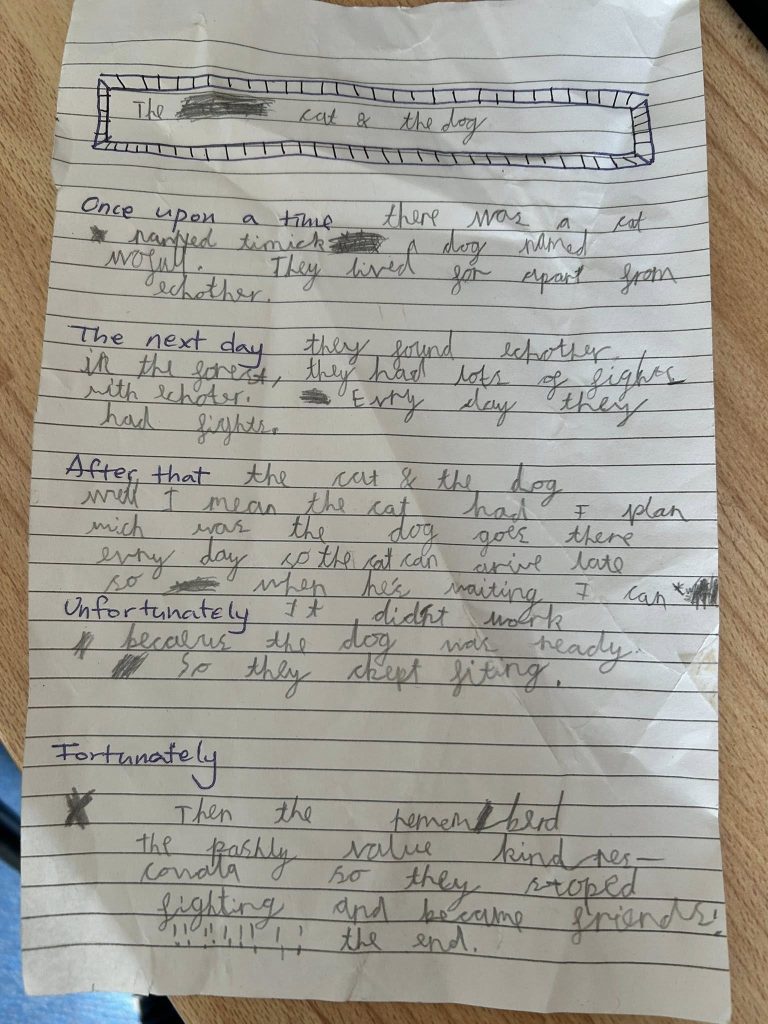 The cat & the dog
Once upon a time there was a cat
namyed timick a dog named
woful. They lived for apart from
echother.
The next day they found echother
in the forest, they had lots of fights
with echoter. Evry day they
had fights.
After that the cat & the dog
well I mean the cat had I plan
wich was the dog goes there
evry day so the cat can arive late
so when he's waiting I can
Unfortunately It didn't work
becaeus the dog was ready.
so they ckept fiting.
Fortunately
Then the rememberd
the pashly value kind res-
conala so they stoped
fighting and became friends!
!!!!!!!! the end.